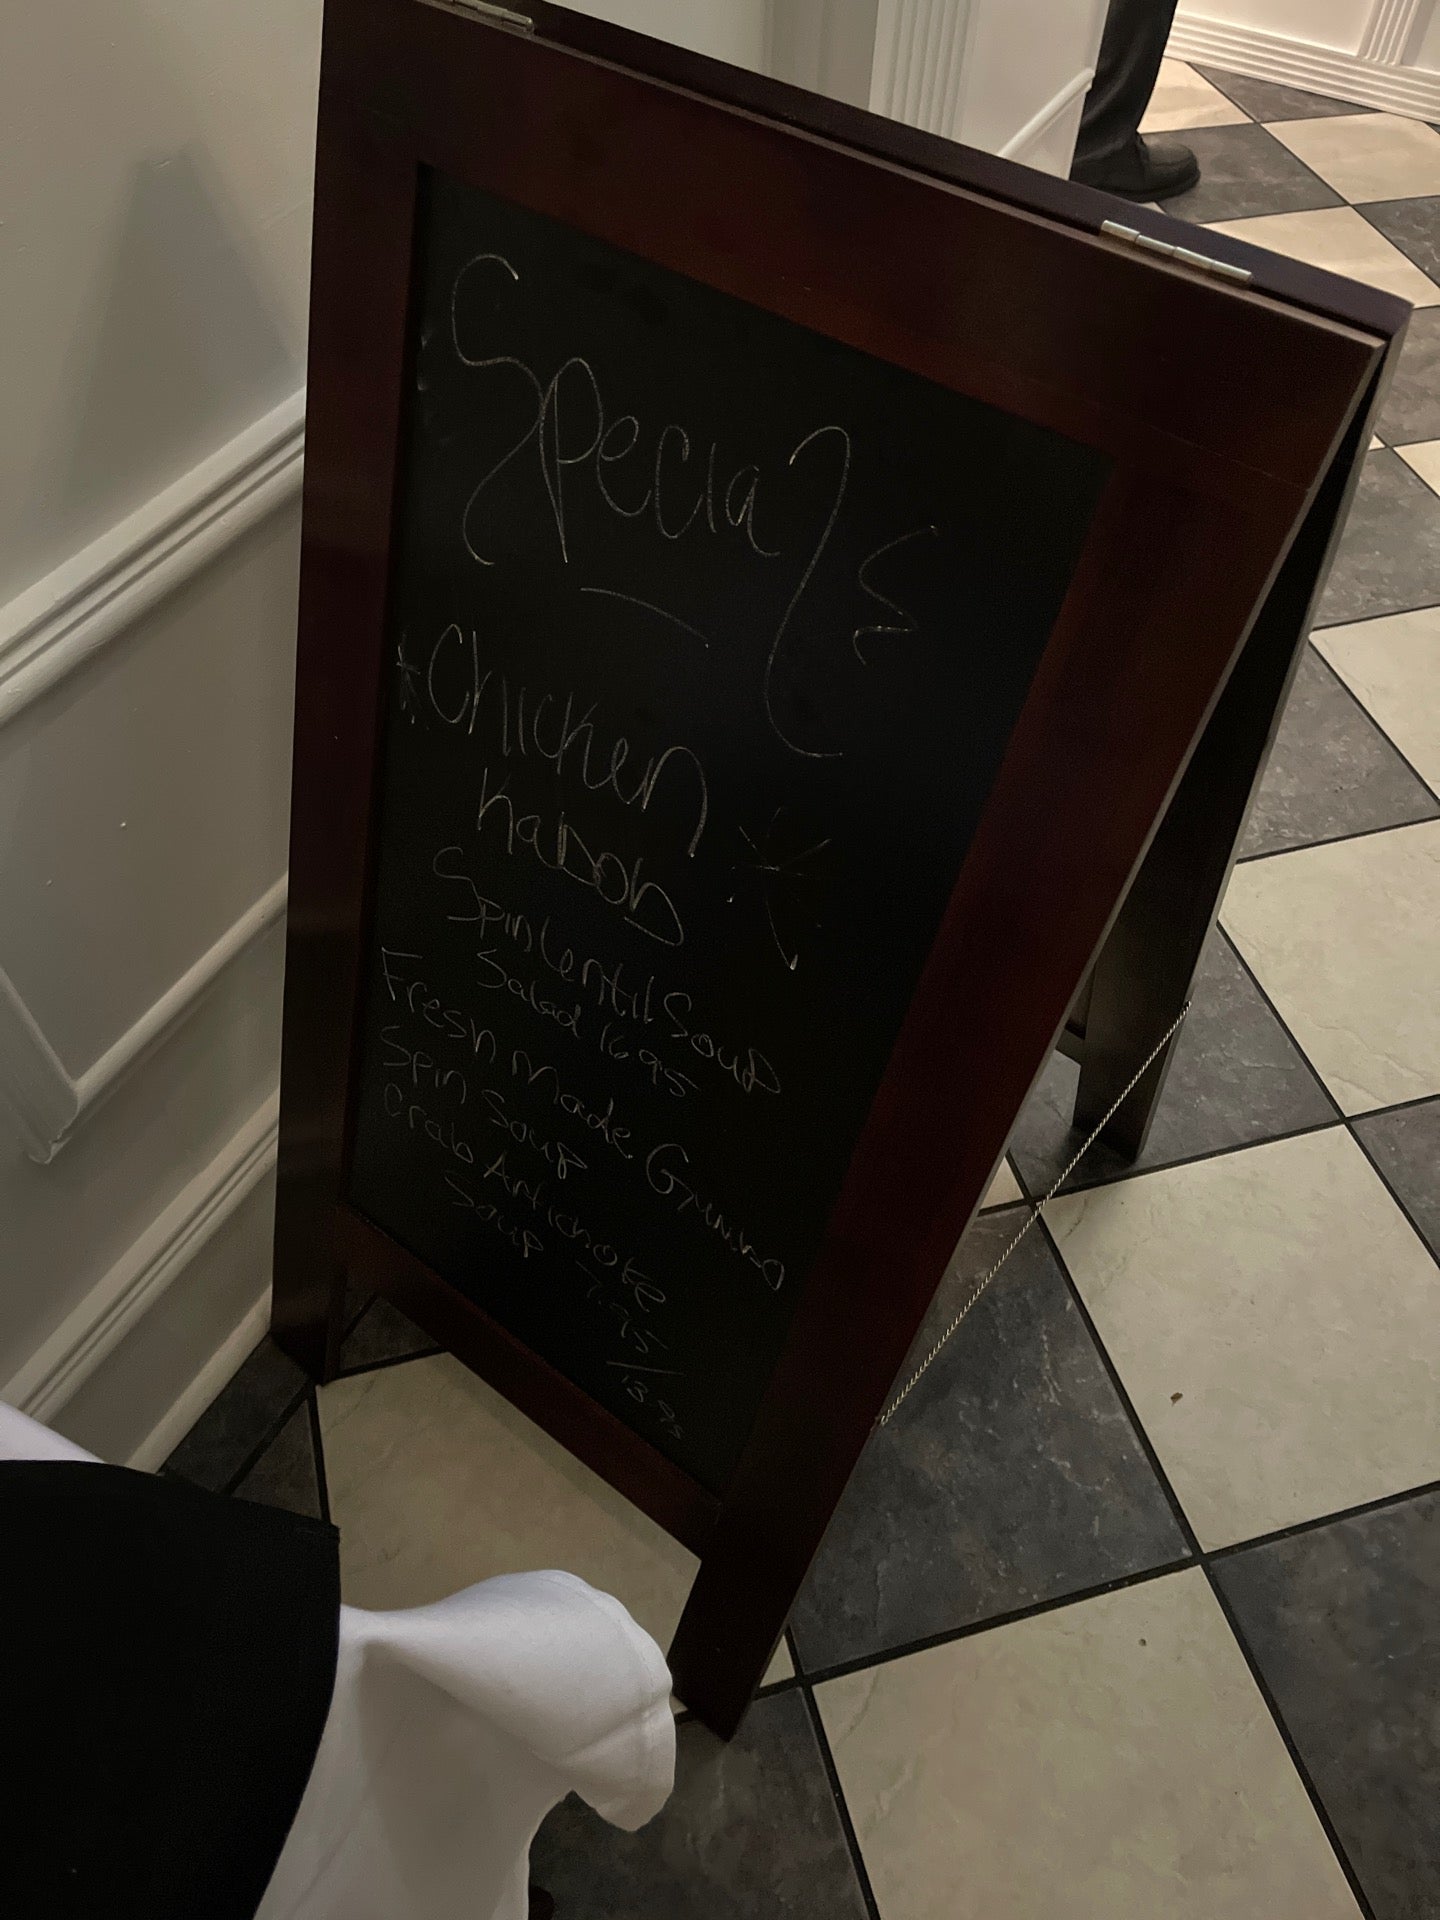 Specials
*Chicken
Kabob *
Spin Lentil Soup
Salad 16 95
Fresh Made
Spin Soup
Crab Artichoke
Soup 7.95
/ 13 95